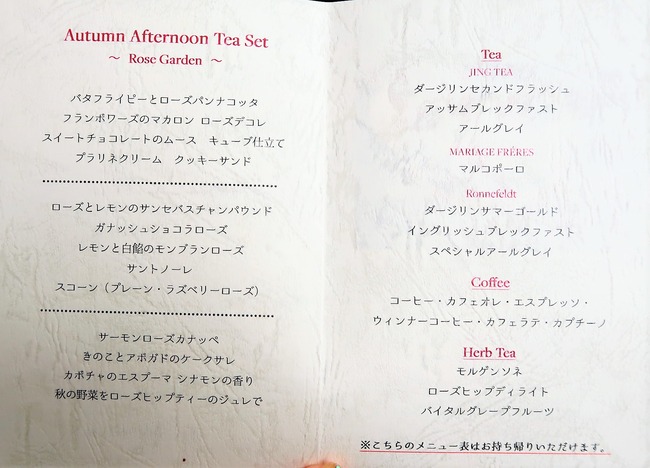 Autumn Afternoon Tea Set
～ Rose Garden ～
バタフライピーとローズパンナコッタ
フランボワーズのマカロン ローズデコレ
スイートチョコレートのムース　キューブ仕立て
プラリネクリーム　クッキーサンド
ローズとレモンのサンセバスチャンパウンド
ガナッシュショコラローズ
レモンと白餡のモンブランローズ
サントノーレ
スコーン（プレーン・ラズベリーローズ）
サーモンローズカナッペ
きのことアボガドのケークサレ
カボチャのエスプーマ シナモンの香り
秋の野菜をローズヒップティーのジュレで
Tea
JING TEA
ダージリンセカンドフラッシュ
アッサムブレックファスト
アールグレイ
MARIAGE FRÈRES
マルコポーロ
Ronnefeldt
ダージリンサマーゴールド
イングリッシュブレックファスト
スペシャルアールグレイ
Coffee
コーヒー・カフェオレ・エスプレッソ・
ウィンナーコーヒー・カフェラテ・カプチーノ
Herb Tea
モルゲンソネ
ローズヒップディライト
バイタルグレープフルーツ
※こちらのメニュー表はお持ち帰りいただけます。